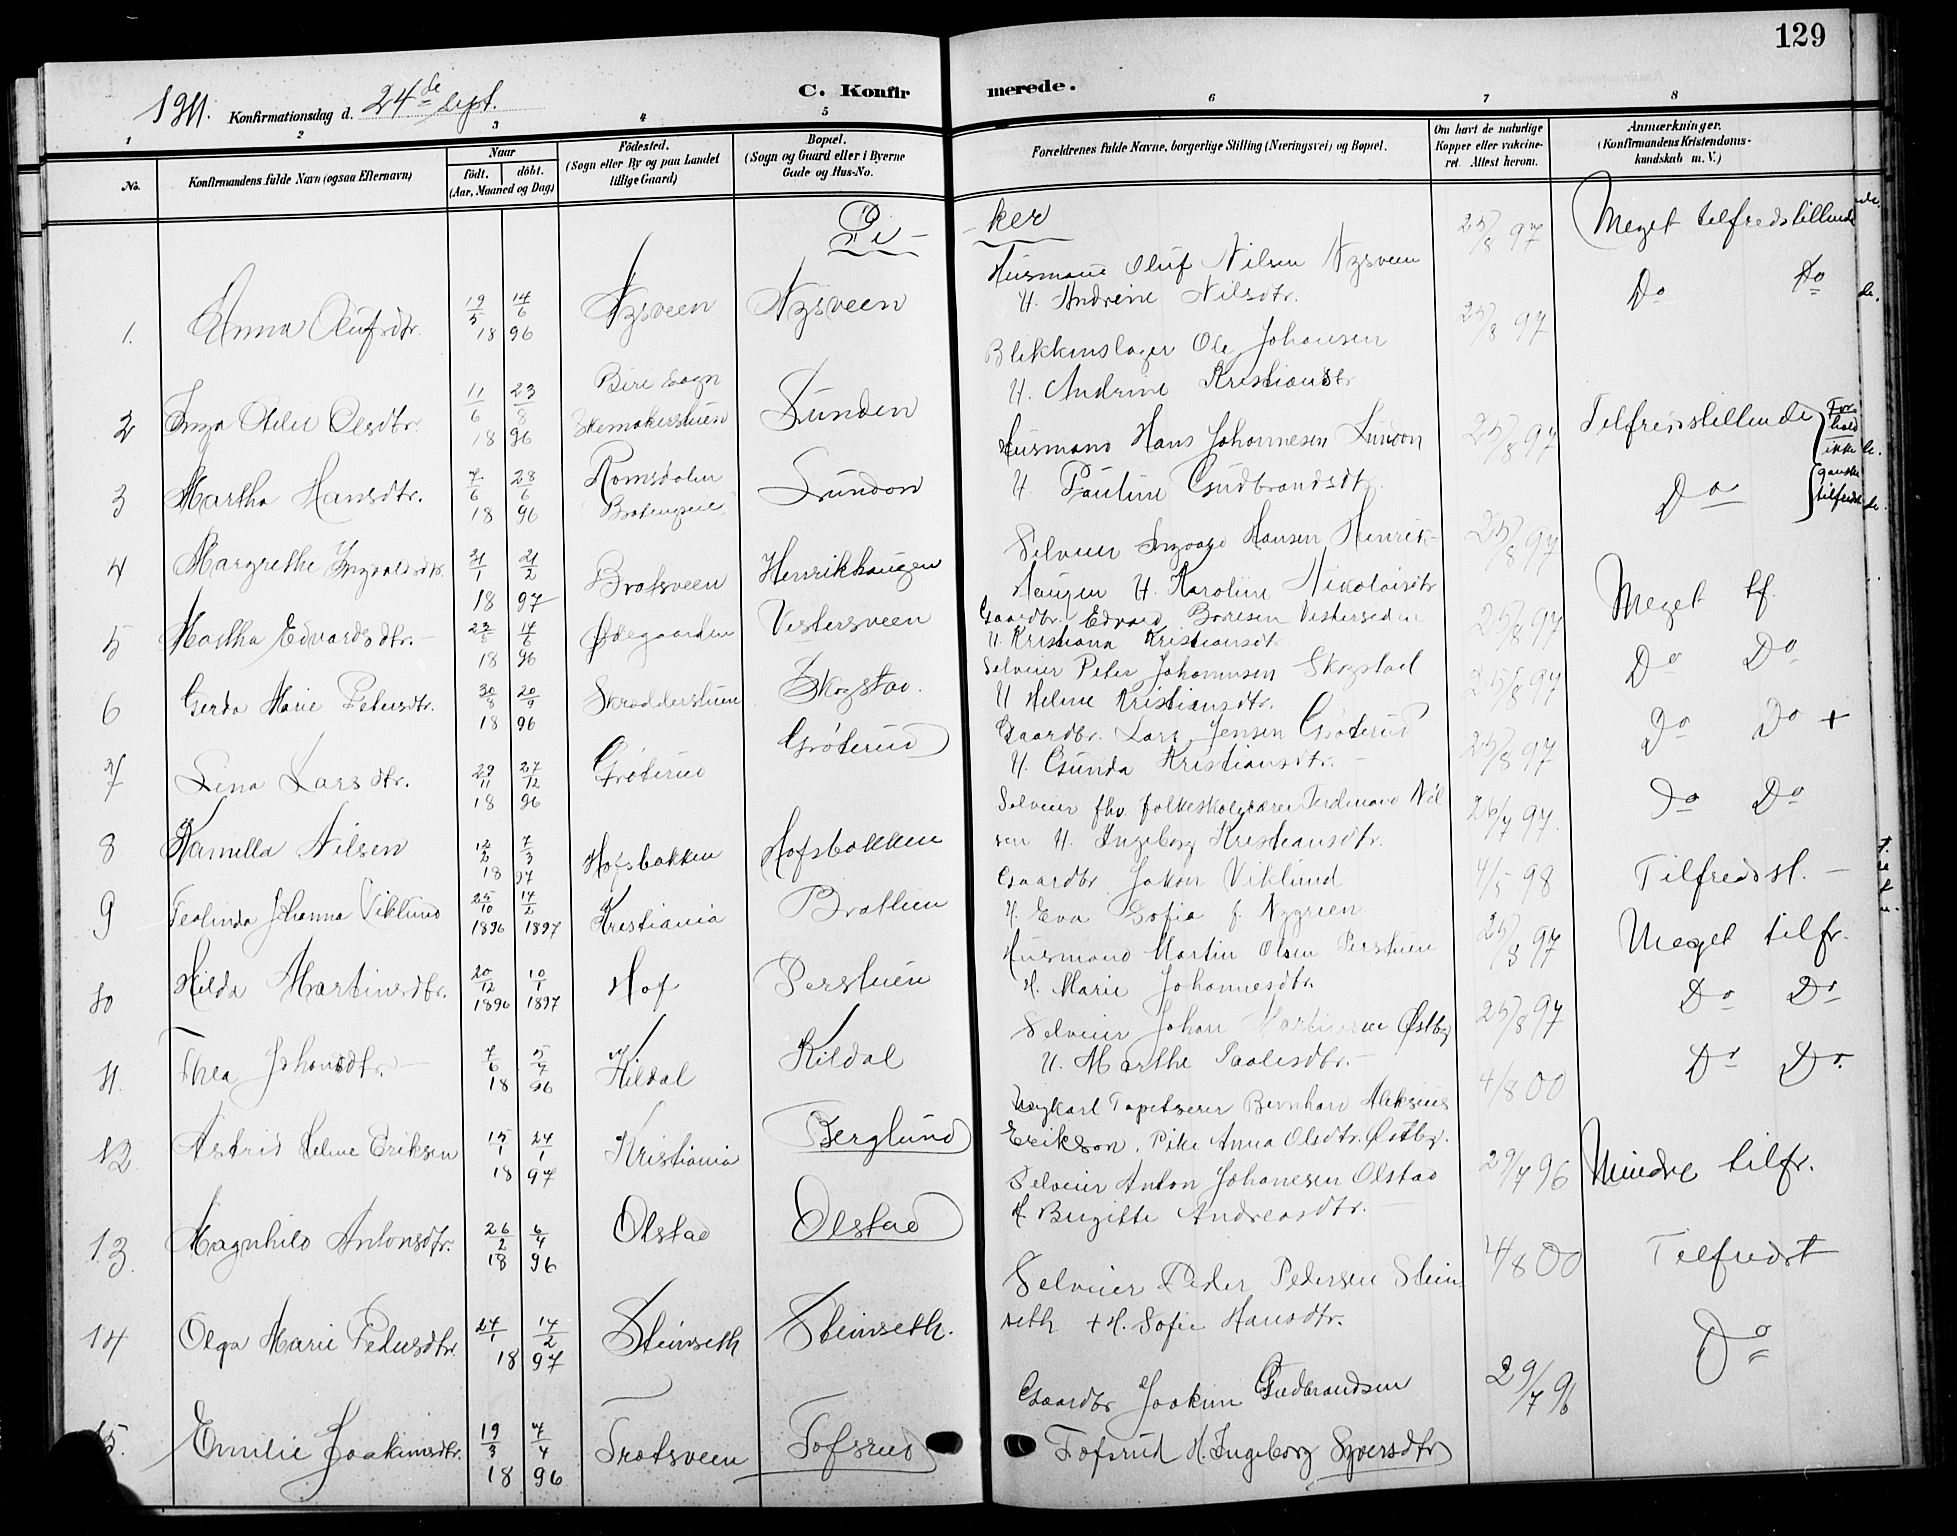 129
1911. Konfirmationsdag d. 24de sept.
C. Konfirmerede.
1 2 3 4 5 6 7 8
No.
Konfirmandens fulde Navn (ogsaa Efternavn)
Naar
født. døbt.
(Aar, Maaned og Dag)
Fødested.
(Sogn eller By og paa Landet
tillige Gaard)
Bopæl.
(Sogn og Gaard eller i Byerne
Gade og Hus-No.
Forældrenes fulde Navne, borgerlige Stilling (Næringsvei) og Bopæl.
Om havt de naturlige
Kopper eller vaccine-
ret. Attest herom.
Anmærkninger.
(Konfirmandens Kristendoms-
kundskab m. V.)
Pi-
-ker
1. Anna Olufsdtr. 19/5 14/6 1896 Nysveen Nysveen
Husmand Oluf Nilsen Nysveen
H. Andrine Nilsdtr.
25/8 97 Meget tilfredstillende
2 Inga Olsdtr. 11/6 23/8 1896 Biri sogn
Skomakerstuen Lunden
Blikkenslager Ole Johansen
H. Andrine Kristiansdtr
25/8 97 Do Do
3 Martha Hansdtr. 7/6 28/6 1896 Romsdalen Lunden
Husmand Hans Johannesen Lunden
H. Pauline Gudbrandsdtr.
25/8 97 Tilfredstillende
For-
hold
ikke
ganske
tilfredst
4 Margrethe Ingvaldsdtr. 31/1 21/2 1897 Bratsveen Henrikhaugen
Selveier Ingvald Hansen Henrik-
haugen H. Karoline Nikolaisdtr
25/8 97 Do
5 Martha Edvardsdtr. 23/5 14/6 1896 Ødegaarden Vestersveen
Gaardbr. Edvard Boresen Vestersiden
H. Kristiana Kristiansdt
25/8 97 Meget tf.
6 Gerda Marie Petersdtr. 30/8 20/9 1896 Skradderstuen Skogstad
Selveier Peter Johannesen Skogstad
H Helene Kristiansdtr.
25/8 97 Do Do
7 Lina Larsdtr. 29/11 27/12 1896 Grøterud Grøterud
Gaardbr. Lars Jensen Grøterud
H. Gunda Kristiansdtr.
25/8 97 Do Do +
8 Kamilla Nilsen 12/2 7/3 1897 Hofsbakken Hofsbakken
Selveier fhv. folkeskolelærer Ferdinand Nil
sen H. Ingeborg Kristiansdtr.
26/7 97. Do Do
9 Teolinda Johanna Viklund 25/10 1896 14/2 1897 Kristiania Bratlien
Gaardbr. Jakon Viklund
H. Eva Sofia f. Nygrien
4/5 98 Tilfredsst.
10 Hilda Martinsdtr. 20/12 1896 10/1 1897 Hof Perstuen
Husmand Martin Olsen Perstuen
H. Marie Johannesdtr.
25/8 97 Meget tilfr.
11. Thea Johansdtr. 7/6 5/7 1896 Kildal Kildal
Selveier Johan Martinsen Østby
H. Marthe Paalesdtr.
25/8 97 Do Do
12. Astrid Helene Eriksen 15/1 24/1 1897 Kristiania Berglund
Ungkarl Tapetserer Bernhard Aleksius
Erikson. Pike Anna Olsdtr. Østby.
4/8 00 Do Do.
13. Magnhild Antonsdtr. 26/2 6/4 1896 Olstad Olstad
Selveier Anton Johanesen Olstad
H. Birgitte Andreasdtr.
29/7 96 Mindre tilfr.
14 Olga Marie Pedersdtr. 27/1 14/2 1897 Steinseth Steinseth.
Selveier Peder Pedersen Stein
seth + H. Sofie Hansdtr.
4/8 00 Tilfredst
15. Emilie Joakimsdtr. 19/3 7/4 1896 Trotsveen Tofsrud
Gaardbr Joakim Gudbrandsen
Tofsrud H. Ingeborg Syversdtr
29/7 96 Do